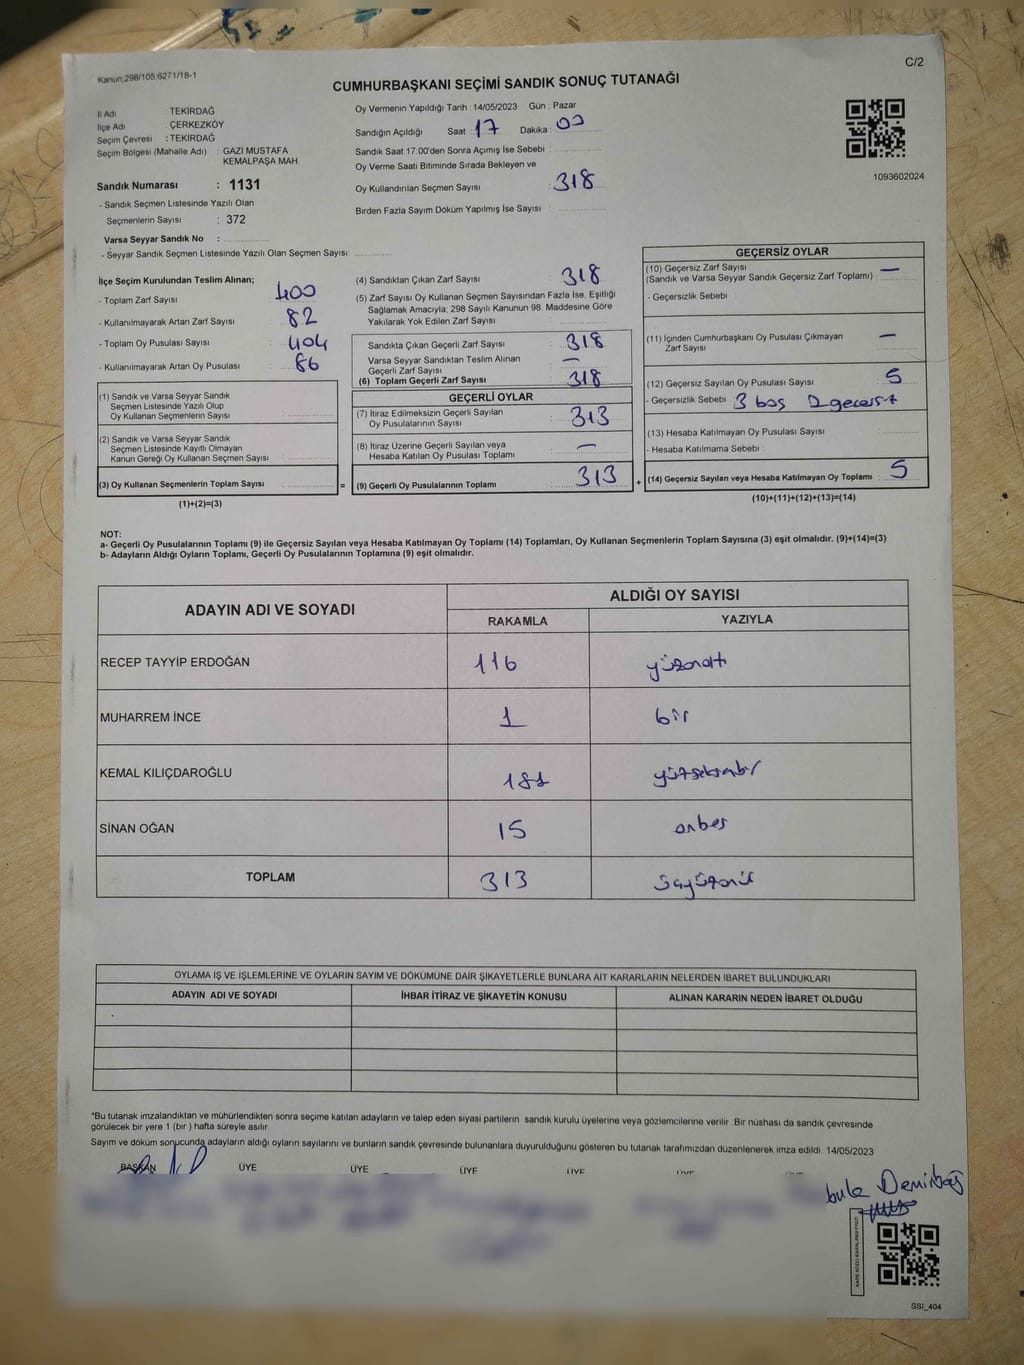 Kanun:298/105;6271/18-1
C/2
CUMHURBAŞKANI SEÇİMİ SANDIK SONUÇ TUTANAĞI
İl Adı : TEKİRDAĞ
İlçe Adı : ÇERKEZKÖY
Seçim Çevresi : TEKİRDAĞ
Seçim Bölgesi (Mahalle Adı) : GAZI MUSTAFA
KEMALPAŞA MAH
Sandık Numarası : 1131
- Sandık Seçmen Listesinde Yazılı Olan
Seçmenlerin Sayısı : 372
Varsa Seyyar Sandık No :
- Seyyar Sandık Seçmen Listesinde Yazılı Olan Seçmen Sayısı:
Oy Vermenin Yapıldığı Tarih :14/05/2023 Gün : Pazar
Sandığın Açıldığı Saat : 17 Dakika : 00
Sandık Saat 17:00'den Sonra Açımış İse Sebebi :
Oy Verme Saati Bitiminde Sırada Bekleyen ve
Oy Kullandırılan Seçmen Sayısı : 318
Birden Fazla Sayım Döküm Yapılmış İse Sayısı :
1093602024
İlçe Seçim Kurulundan Teslim Alınan;
- Toplam Zarf Sayısı : 400
- Kullanılmayarak Artan Zarf Sayısı : 82
- Toplam Oy Pusulası Sayısı : 404
- Kullanılmayarak Artan Oy Pusulası : 86
(1) Sandık ve Varsa Seyyar Sandık
Seçmen Listesinde Yazılı Olup
Oy Kullanan Seçmenlerin Sayısı :
(2) Sandık ve Varsa Seyyar Sandık
Seçmen Listesinde Kayıtlı Olmayan
Kanun Gereği Oy Kullanan Seçmen Sayısı :
(3) Oy Kullanan Seçmenlerin Toplam Sayısı : =
(1)+(2)=(3)
(4) Sandıktan Çıkan Zarf Sayısı : 318
(5) Zarf Sayısı Oy Kullanan Seçmen Sayısından Fazla İse, Eşitliği
Sağlamak Amacıyla; 298 Sayılı Kanunun 98. Maddesine Göre
Yakılarak Yok Edilen Zarf Sayısı :
Sandıkta Çıkan Geçerli Zarf Sayısı : 318
Varsa Seyyar Sandıktan Teslim Alınan
Geçerli Zarf Sayısı : —
(6) Toplam Geçerli Zarf Sayısı : 318
GEÇERLİ OYLAR
(7) İtiraz Edilmeksizin Geçerli Sayılan
Oy Pusulalarının Sayısı : 313
(8) İtiraz Üzerine Geçerli Sayılan veya
Hesaba Katılan Oy Pusulası Toplamı : —
(9) Geçerli Oy Pusulalarının Toplamı : 313 +
GEÇERSİZ OYLAR
(10) Geçersiz Zarf Sayısı
(Sandık ve Varsa Seyyar Sandık Geçersiz Zarf Toplamı) : —
- Geçersizlik Sebebi :
(11) İçinden Cumhurbaşkanı Oy Pusulası Çıkmayan
Zarf Sayısı : —
(12) Geçersiz Sayılan Oy Pusulası Sayısı : 5
- Geçersizlik Sebebi : 3 boş 2 geçersiz
(13) Hesaba Katılmayan Oy Pusulası Sayısı :
- Hesaba Katılmama Sebebi :
(14) Geçersiz Sayılan veya Hesaba Katılmayan Oy Toplamı : 5
(10)+(11)+(12)+(13)=(14)
NOT:
a- Geçerli Oy Pusulalarının Toplamı (9) ile Geçersiz Sayılan veya Hesaba Katılmayan Oy Toplamı (14) Toplamları, Oy Kullanan Seçmenlerin Toplam Sayısına (3) eşit olmalıdır. (9)+(14)=(3)
b- Adayların Aldığı Oyların Toplamı, Geçerli Oy Pusulalarının Toplamına (9) eşit olmalıdır.
ADAYIN ADI VE SOYADI
ALDIĞI OY SAYISI
RAKAMLA YAZIYLA
RECEP TAYYİP ERDOĞAN 116 yüzonaltı
MUHARREM İNCE 1 bir
KEMAL KILIÇDAROĞLU 181 yüzseksenbir
SİNAN OĞAN 15 onbeş
TOPLAM 313 üçyüzonüç
OYLAMA İŞ VE İŞLEMLERİNE VE OYLARIN SAYIM VE DÖKÜMÜNE DAİR ŞİKAYETLERLE BUNLARA AİT KARARLARIN NELERDEN İBARET BULUNDUKLARI
ADAYIN ADI VE SOYADI İHBAR İTİRAZ VE ŞİKAYETİN KONUSU ALINAN KARARIN NEDEN İBARET OLDUĞU
*Bu tutanak imzalandıktan ve mühürlendikten sonra seçime katılan adayların ve talep eden siyasi partilerin sandık kurulu üyelerine veya gözlemcilerine verilir .Bir nüshası da sandık çevresinde
görülecek bir yere 1 (bir ) hafta süreyle asılır.
Sayım ve döküm sonucunda adayların aldığı oyların sayılarını ve bunların sandık çevresinde bulunanlara duyurulduğunu gösteren bu tutanak tarafımızdan düzenlenerek imza edildi. 14/05/2023
BAŞKAN ÜYE ÜYE ÜYE ÜYE ÜYE ÜYE
Demirbaş
SSI_404